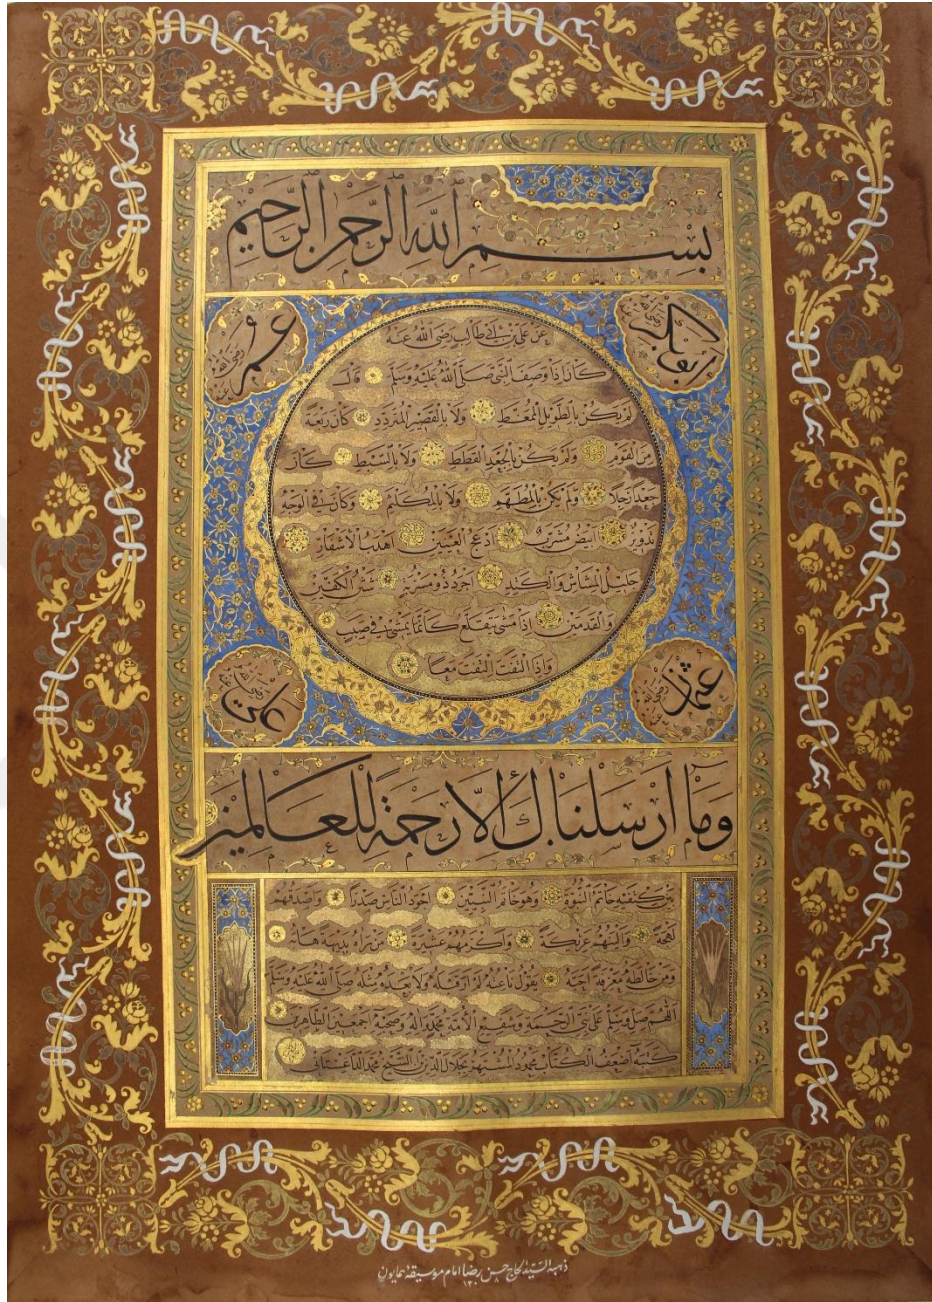 بسم الله الرحمن الرحيم
ابو بكر رضى الله عنه
عمر رضى الله عنه
عن على بن ابى طالب رضى الله عنه
كان اذا وصف النبى صلى الله عليه وسلم قال
لم يكن بالطويل الممغط ولا بالقصير المتردد وكان ربعة
من القوم ولم يكن بالجعد القطط ولا بالسبط كان
جعدا رجلا ولم يكن بالمطهم ولا بالمكلثم وكان فى الوجه
تدوير ابيض مشرب ادعج العينين اهدب الاشفار
جليل المشاش والكتد اجرد ذو مسربة شثن الكفين
والقدمين اذا مشى يتقلع كانما يمشى فى صبب
واذا التفت التفت معا
عثمان رضى الله عنه
على رضى الله عنه
وما ارسلناك الا رحمة للعالمين
بين كتفيه خاتم النبوة وهو خاتم النبيين اجود الناس صدرا واصدقهم
لهجة والينهم عريكة واكرمهم عشيرة من رآه بديهة هابه
ومن خالطه معرفة احبه يقول ناعته لم ار قبله ولا بعده مثله صلى الله عليه وسلم
اللهم صل وسلم على نبى الرحمة وشفيع الامة محمد وآله وصحبه اجمعين الطاهرين
كتبه اضعف الكتاب محمود المشتهر بجلال الدين بن الشيخ محمد الداغستانى
ذهبه السيد الحاج حسن رضا امام موسيقهٔ همايون